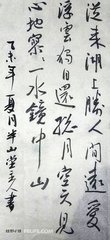 從來湖上勝人間遠愛
浮雲獨自還孤月空天見
心地寥〻一水鏡中山
乙未年夏月半山堂主人書